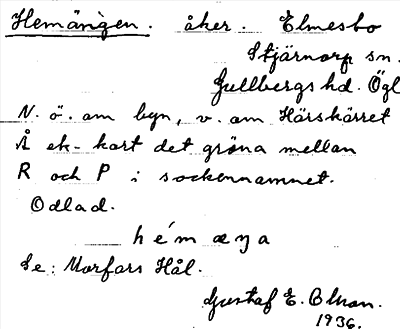 Hemängen. åker. Elmesbo
Stjärnorp sn.
Gullbergs hd. Ögl
N. ö. om byn, v. om Härskärret
Å ek-kart det gröna mellan
R och P i sockennamnet.
Odlad.
hé´m æŋa
Se: Morfars Hål.
Gustaf E. Olson.
1936.